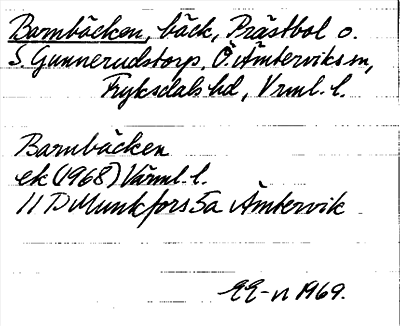 Barnbäcken, bäck, Prästbol o.
S. Gunnerudstorp, Ö. Ämterviks sn,
Fryksdals hd, Vrml. l.
Barnbäcken
ek (1968) Värml. l.
11 D Munkfors 5a Ämtervik
EE-n 1969.